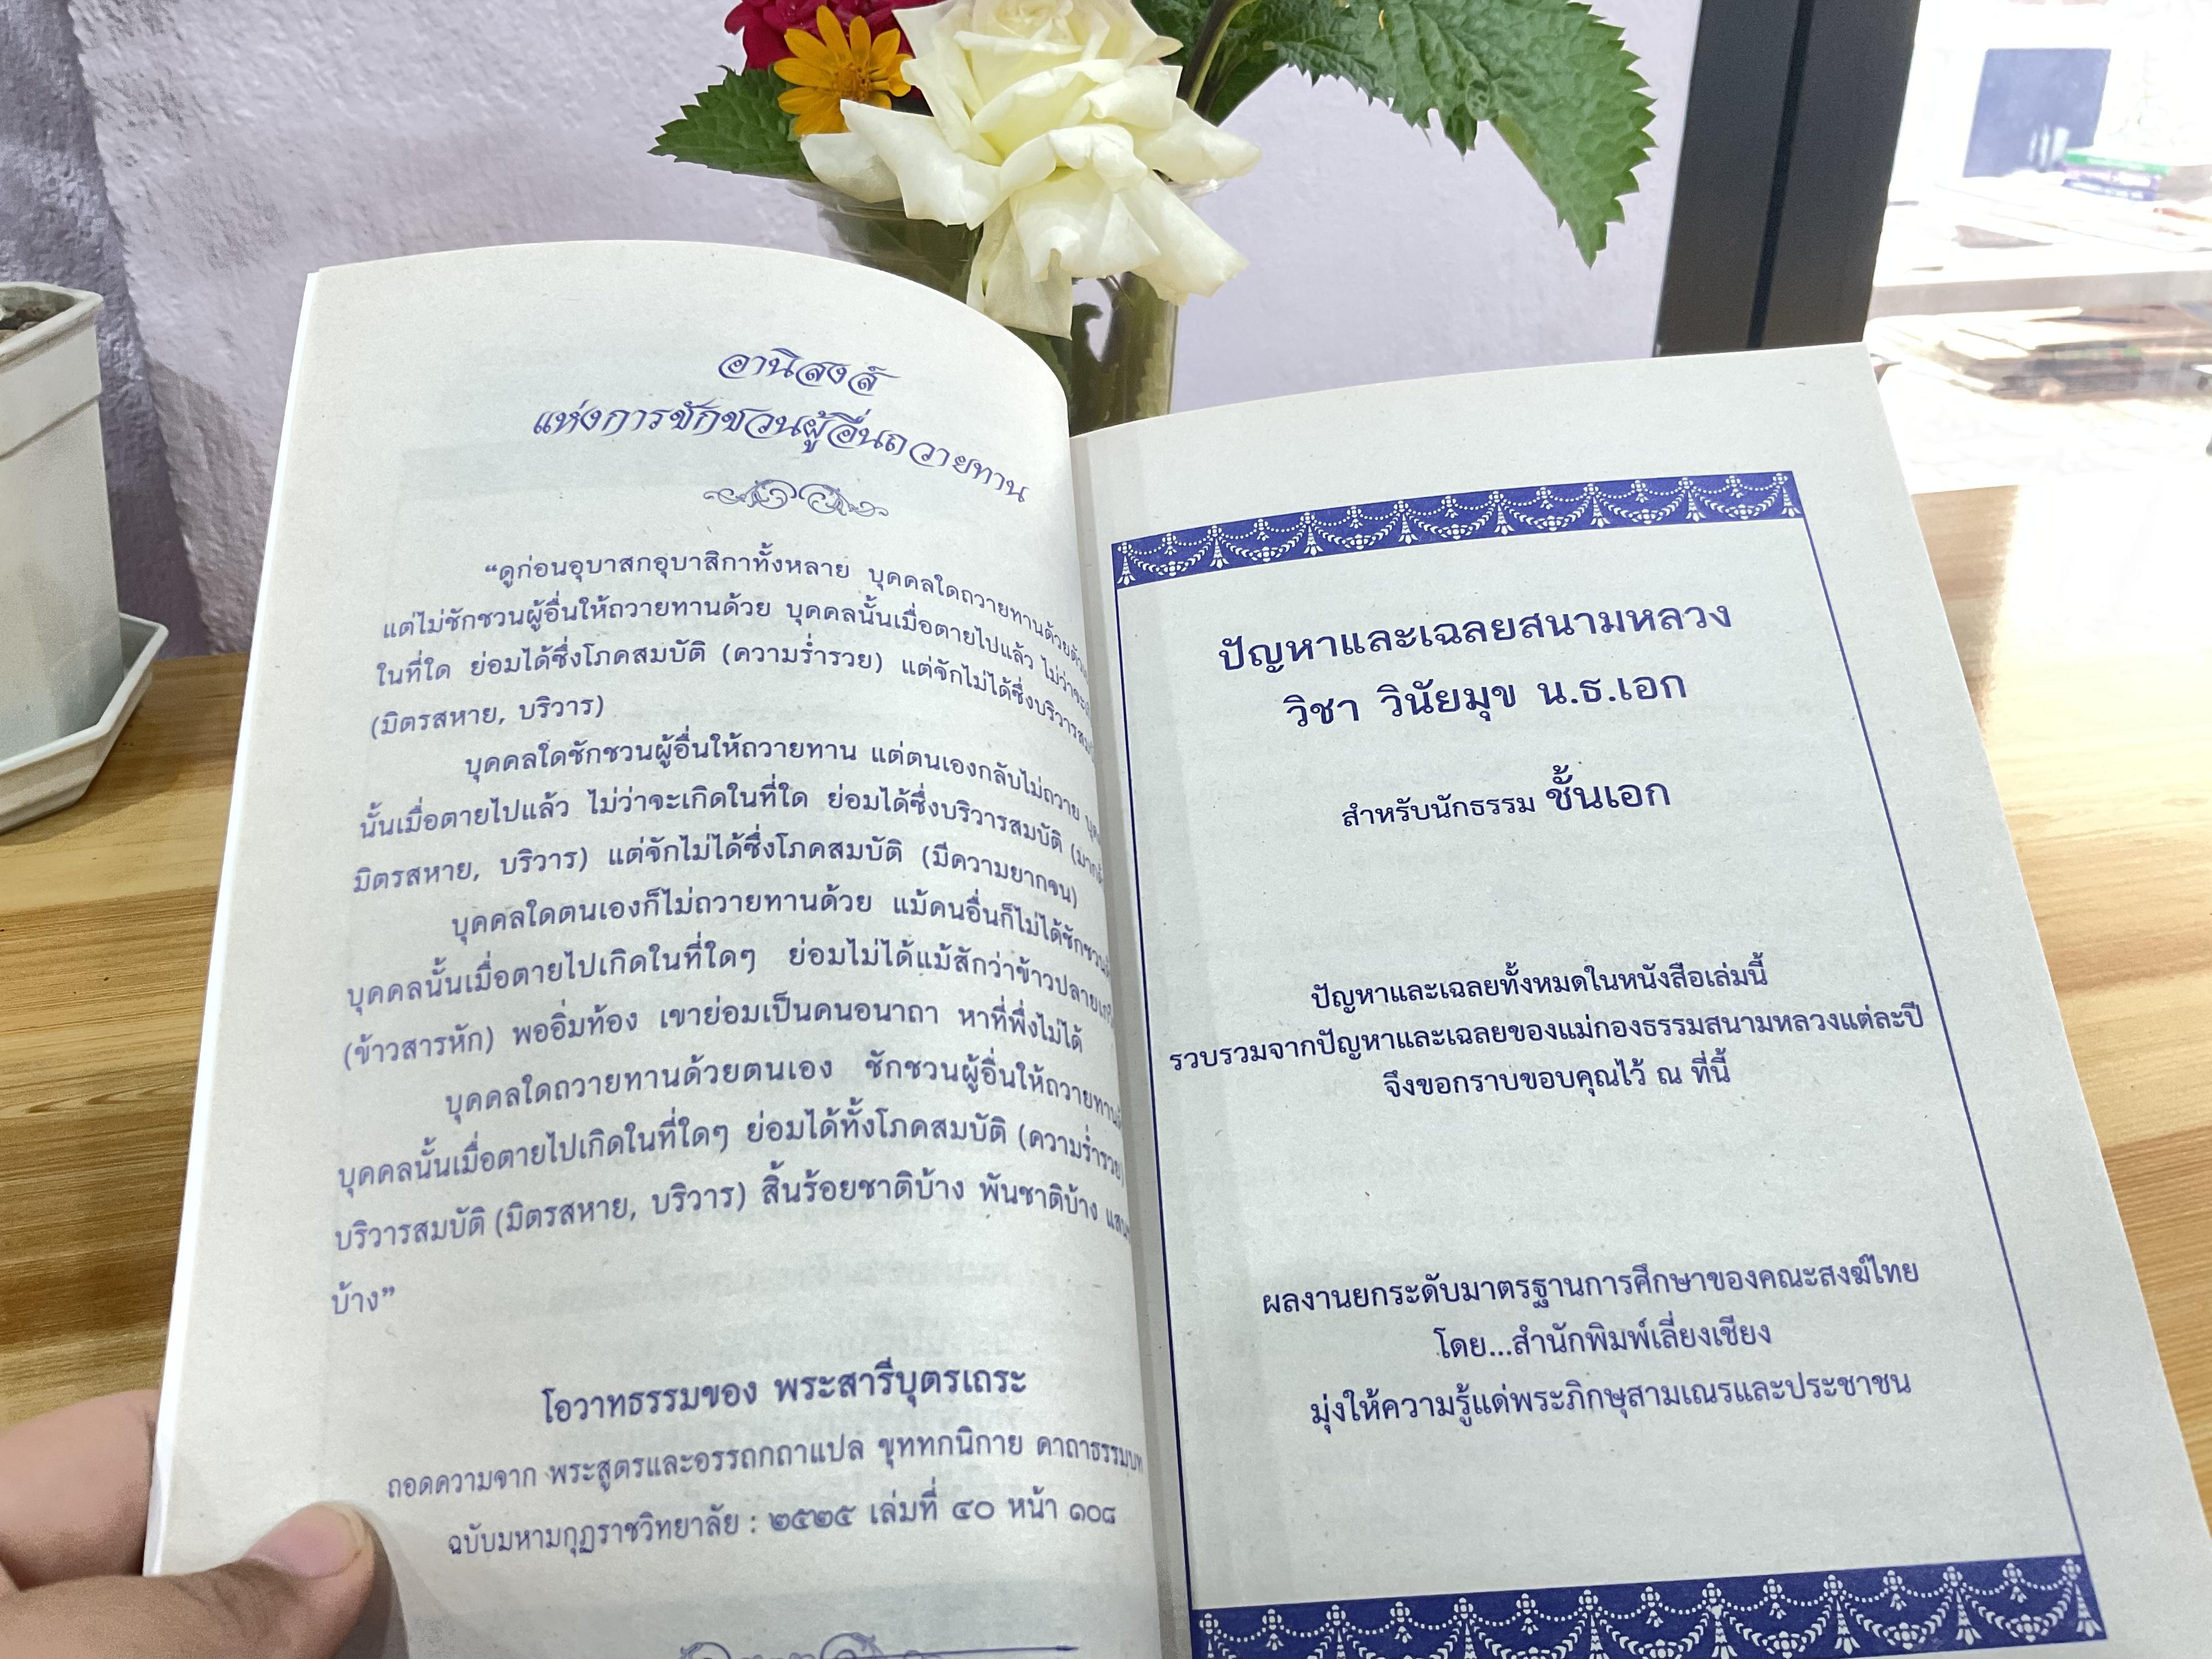 อานิสงส์
แห่งการชักชวนผู้อื่นถวายทาน
“ดูก่อนอุบาสกอุบาสิกาทั้งหลาย บุคคลใดถวายทานด้วยตัวเอง
แต่ไม่ชักชวนผู้อื่นให้ถวายทานด้วย บุคคลนั้นเมื่อตายไปแล้ว ไม่ว่าจะ
ในที่ใด ย่อมได้ซึ่งโภคสมบัติ (ความร่ำรวย) แต่จักไม่ได้ซึ่งบริวารสมบัติ
(มิตรสหาย, บริวาร)
บุคคลใดชักชวนผู้อื่นให้ถวายทาน แต่ตนเองกลับไม่ถวาย
นั้นเมื่อตายไปแล้ว ไม่ว่าจะเกิดในที่ใด ย่อมได้ซึ่งบริวารสมบัติ
มิตรสหาย, บริวาร) แต่จักไม่ได้ซึ่งโภคสมบัติ (มีความยากจน)
บุคคลใดตนเองก็ไม่ถวายทานด้วย แม้คนอื่นก็ไม่ได้ชักชวน
บุคคลนั้นเมื่อตายไปเกิดในที่ใดๆ ย่อมไม่ได้แม้สักว่าข้าวปลาย
(ข้าวสารหัก) พออิ่มท้อง เขาย่อมเป็นคนอนาถา หาที่พึ่งไม่ได้
บุคคลใดถวายทานด้วยตนเอง ชักชวนผู้อื่นให้ถวายทาน
บุคคลนั้นเมื่อตายไปเกิดในที่ใดๆ ย่อมได้ทั้งโภคสมบัติ (ความร่ำรวย)
บริวารสมบัติ (มิตรสหาย, บริวาร) สิ้นร้อยชาติบ้าง พันชาติบ้าง
บ้าง”
โอวาทธรรมของ พระสารีบุตรเถระ
ถอดความจาก พระสูตรและอรรถกถาแปล ขุททกนิกาย คาถาธรรมบท
ฉบับมหามกุฏราชวิทยาลัย : ๒๕๒๕ เล่มที่ ๔๐ หน้า ๑๐๘
ปัญหาและเฉลยสนามหลวง
วิชา วินัยมุข น.ธ.เอก
สำหรับนักธรรม ชั้นเอก
ปัญหาและเฉลยทั้งหมดในหนังสือเล่มนี้
รวบรวมจากปัญหาและเฉลยของแม่กองธรรมสนามหลวงแต่ละปี
จึงขอกราบขอบคุณไว้ ณ ที่นี้
ผลงานยกระดับมาตรฐานการศึกษาของคณะสงฆ์ไทย
โดย...สำนักพิมพ์เลี่ยงเชียง
มุ่งให้ความรู้แด่พระภิกษุสามเณรและประชาชน